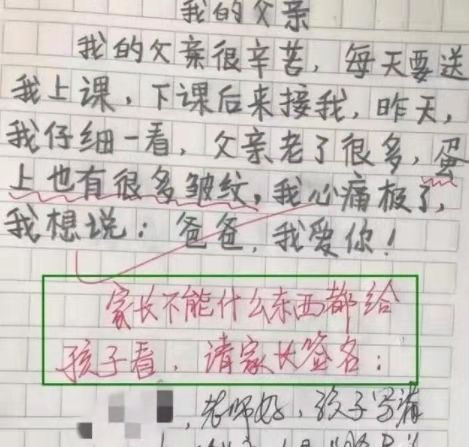 我的父亲
我的父亲很辛苦，每天要送
我上课，下课后来接我，昨天，
我仔细一看，父亲老了很多，蛋
上也有很多皱纹，我心痛极了，
我想说：爸爸，我爱你！
家长不能什么东西都给
孩子看，请家长签名：
，老师好，孩子写请